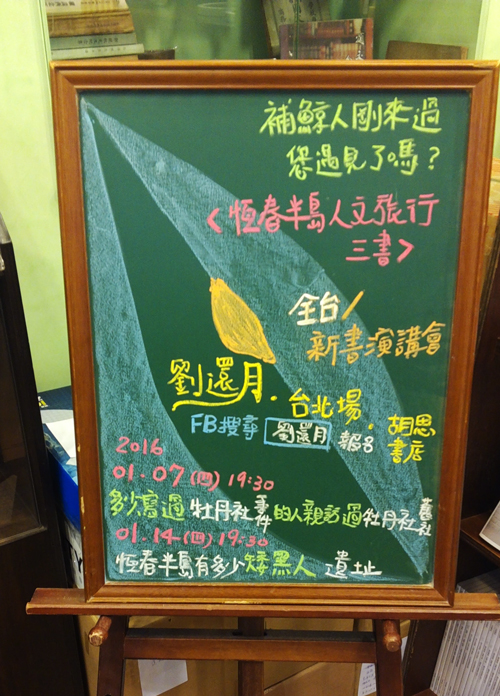 補鯨人剛來過
您遇見了嗎？
<恆春半島人文旅行
三書>
全台/
新書演講會
劉還月．台北場．胡思書店
FB搜尋 劉還月 報名
2016
01.07(四) 19:30
多少寫過牡丹社事件的人親訪過牡丹社舊社
01.14(四) 19:30
恆春半島有多少矮黑人遺址